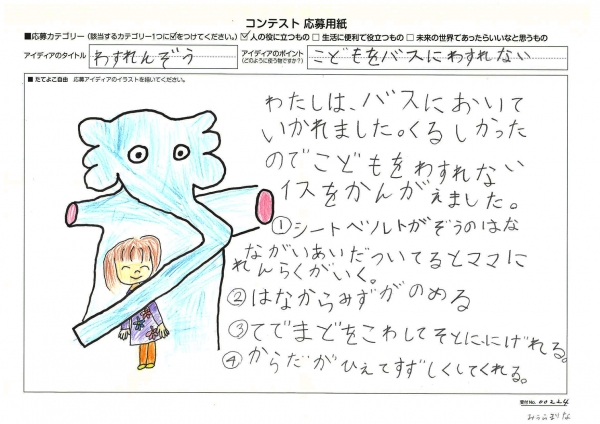 コンテスト 応募用紙
■応募カテゴリー(該当するカテゴリー1つに☑をつけてください。) ☑人の役に立つもの □生活に便利で役立つもの □未来の世界であったらいいなと思うもの
アイディアのタイトル わすれんぞう アイディアのポイント(どのように使う物ですか?) こどもをバスにわすれない
■たてよこ自由 応募アイディアのイラストを描いてください。
わたしは、バスにおいて
いかれました。くるしかった
のでこどもをわすれない
イスをかんがえました。
①シートベルトがぞうのはな
ながいあいだついてるとママに
れんらくがいく。
②はなからみずがのめる
③てでまどをこわしてそとににげれる。
④からだがひえてすずしくしてくれる。
受付No. 00224